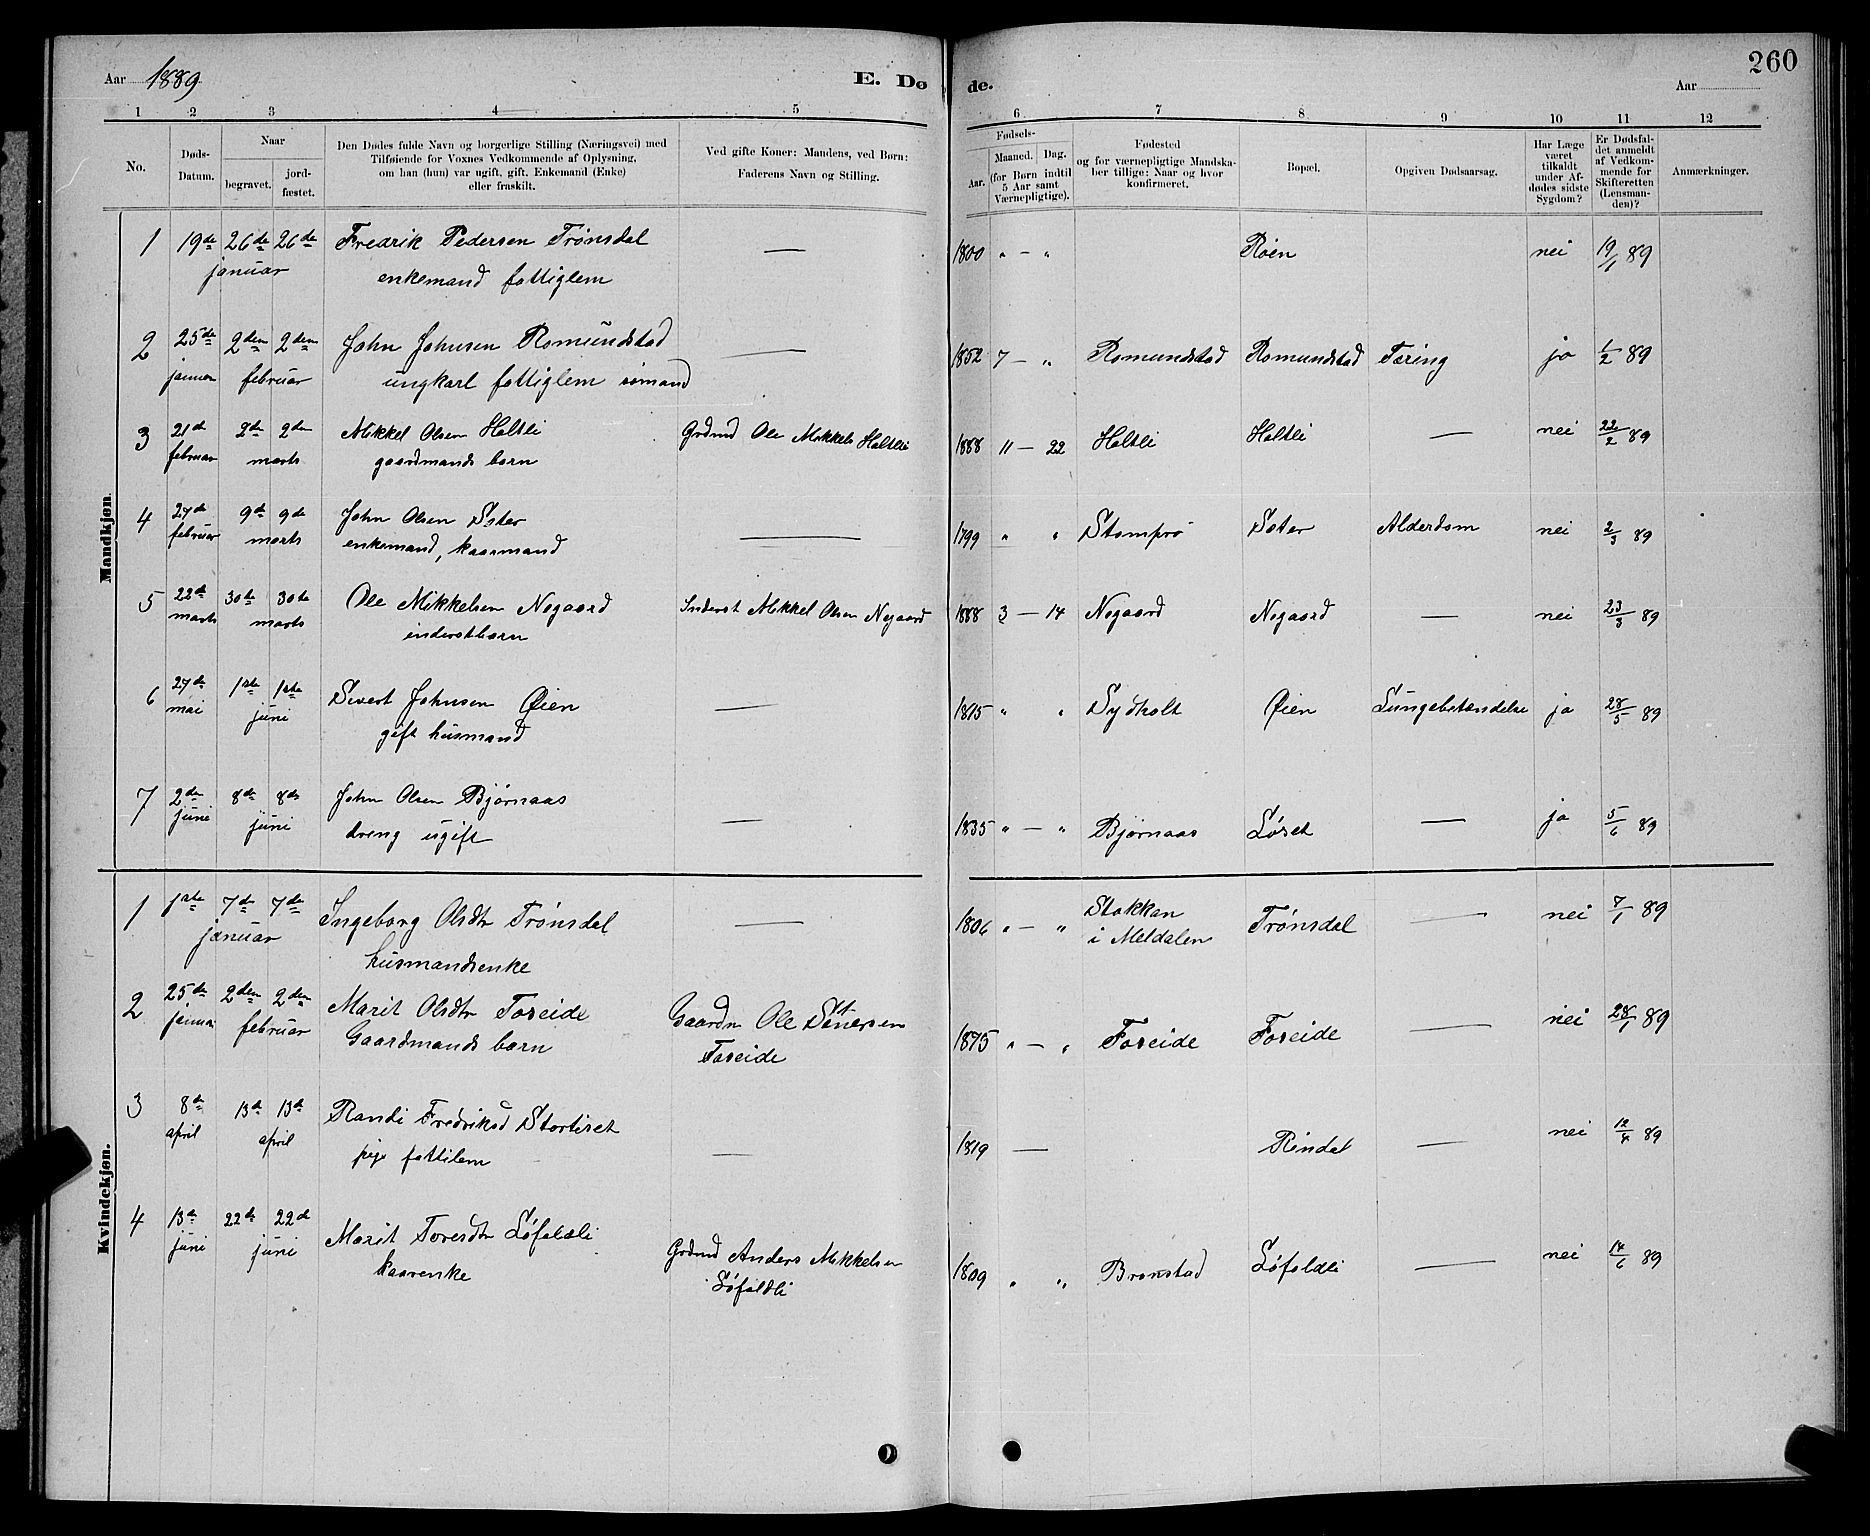 260
Aar 1889
E. Dø
de.
Aar
1 2 3 4 5 6 7 8 9 10 11 12
No.
Døds-
Datum.
Naar
begravet.
jord-
fæstet.
Den Dødes fulde Navn og borgerlige Stilling (Næringsvei) med
Tilføiende for Voxnes Vedkommende af Oplysning,
om han (hun) var ugift, gift, Enkemand (Enke)
eller fraskilt.
Ved gifte Koner: Mandens, ved Børn:
Faderens Navn og Stilling.
Fødsels-
Aar.
Maaned. Dag.
(for Børn indtil
5 Aar samt
Værnepligtige).
Fødested
og for værnepligtige Mandska-
ber tillige: Naar og hvor
konfirmeret.
Bopæl.
Opgiven Dødsaarsag.
Har Læge
været
tilkaldt
under Af-
dødes sidste
Sygdom?
Er Dødsfal-
det anmeldt
af Vedkom-
mende for
Skifteretten
(Lensman-
den)?
Anmærkninger.
Mandkjøn.
1 19de 26de 26de Fredrik Pedersen Trønsdal — 1800 " — " Røen nei 19/1 89
januar enkemand fattiglem
2 25de 2den 2den John Johnsen Romundstad — 1852 7 — " Romundstad Romundstad Tæring ja 1/2 89
januar februar ungkarl fattiglem sømand
3 21de 2den 2den Mikkel Olsen Holtli Grdmd Ole Mikkels Holtli 1888 11 — 22 Holtli Holtli — nei 22/2 89
februar marts gaardmands barn
4 27de 9de 9de John Olsen Sæter — 1799 " " Stomprø Sæter Alderdom nei 2/3 89
februar marts enkemand, kaarmand
5 22de 30te 30te Ole Mikkelsen Nogaard Inderst Mikkel Olsen Nogaard 1888 3 — 14 Nogaard Nogaard — nei 23/3 89
marts marts inderstbarn
6 27de 1ste 1ste Sivert Johnsen Øien — 1815 " " Sydholt Øien Lungebetændelse ja 28/5 89
mai juni gift husmand
7 2den 8de 8de John Olsen Bjørnaas — 1835 " — " Bjørnaas Løset — ja 5/6 89
juni juni dreng ugift
Kvindekjøn.
1 1ste 7de 7de Ingeborg Olsdtr Trønsdal — 1806 " — " Stokkan i Meldalen Trønsdal — nei 7/1 89
januar husmandsenke
2 25de 2den 2den Marit Olsdtr Foseide Gaardm Ole Siversen 1875 " — " Foseide Foseide — nei 28/1 89
januar februar Gaardmands barn Foseide
3 8de 13de 13de Randi Fredriksd Stortiset — 1819 — Rindal — nei 12/4 89
april april pige fattilem
4 13de 22de 22de Marit Toresdtr Løfaldli Grdmd Anders Mikkelsen 1809 " " Bronstad Løfaldli — nei 14/6 89
juni juni kaarenke Løfaldli